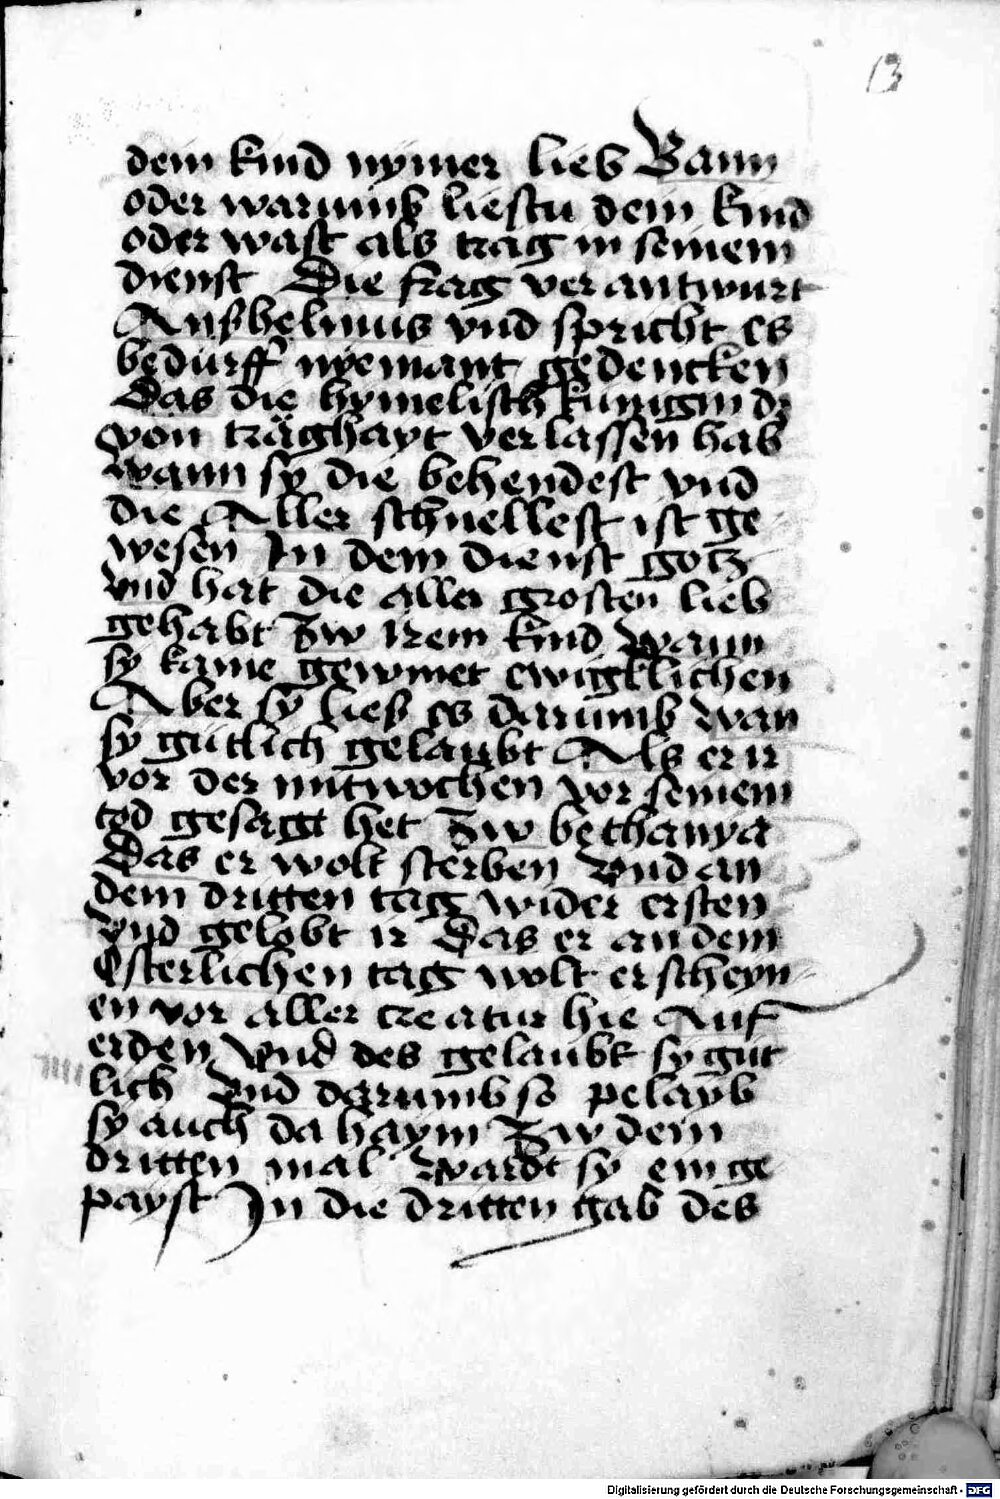 13
dem kind nymer lieb Wann
oder warumb liestu dein kind
oder wast als trag in seinem
dienst Die frag verantwurt
Anßhelmus vnd spricht es
bedurff nyemant gedencken
Das die hymelisch kunigin dz
von träghayt verlassen hab
wann sy die behendest vnd
die Aller schnellest ist ge
wesen In dem dienst gotz
vnd hat die aller grosten lieb
gehabt zw irem kind wann
sy kame gewinet ewigklichen
Aber sy ließ es darumb wan
sy gütlich gelaubt Als er ir
vor der mitwochen vor seinem
tod gesagt het zw bethanya
Das er wolt sterben vnd an
dem dritten tag wider ersten
vnd gelobt ir Das er an dem
Osterlichen tag wolt erscheyn
en vor aller creatur hie Auf
erden vnd des gelaubt sy güt
lich vnd darumb so pelayb
sy auch da haym zw dem
dritten mal wardt sy ein ge
payst In die dritten gab des
Digitalisierung gefördert durch die Deutsche Forschungsgemeinschaft - DFG